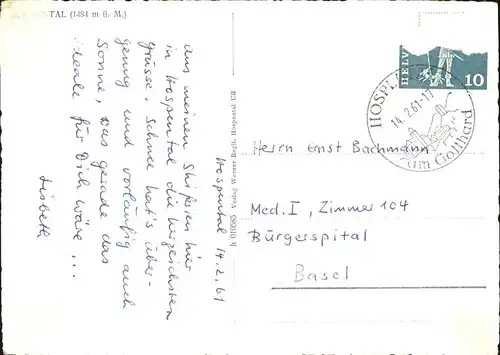 TAL (1484 m ü. M.)
Hospental 14.2.61
Aus meinen Skiferien hier
in Hospental die herzlichsten
Grüsse. Schnee hat's über-
genug und vorläufig auch
Sonne, was gerade das
ideale für Dich wäre ...
Lisbeth
h 010385 Verlag Werner Hospental UR
HELV
10
HOSP
14.2.61-17
am Gotthard
Herrn Ernst Bachmann
Med. I, Zimmer 104
Bürgerspital
Basel